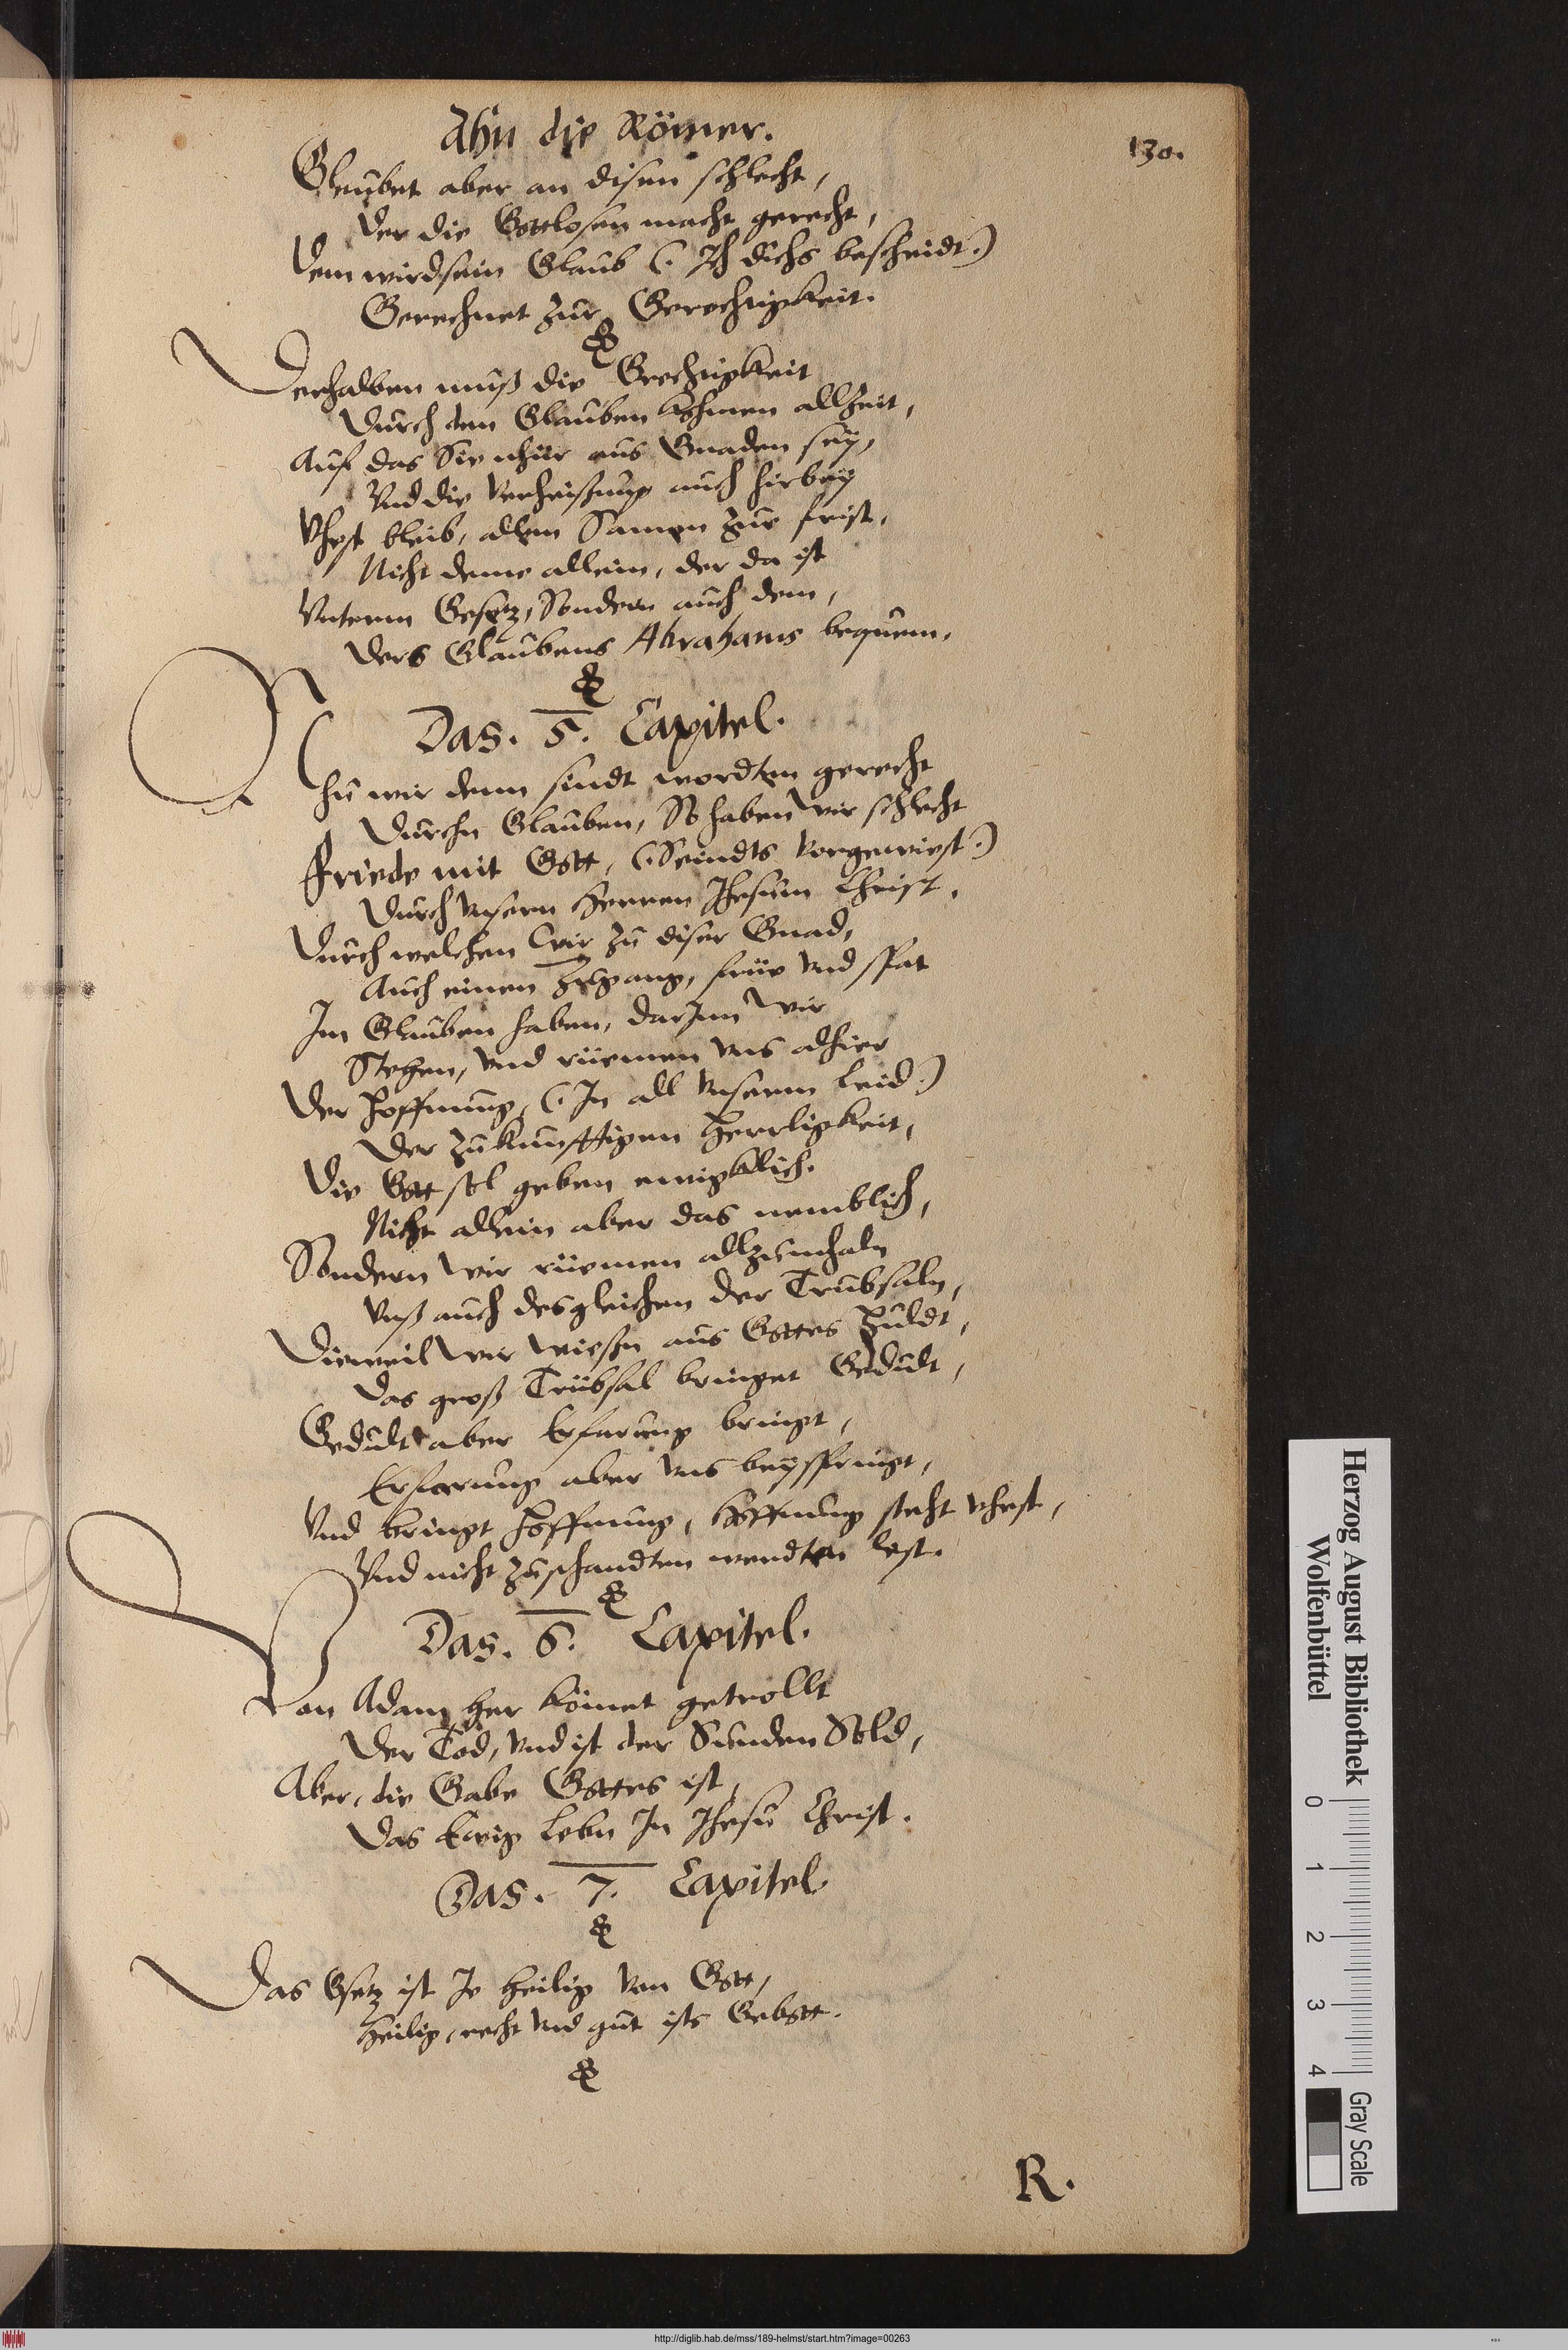 Ahn die Römer.
130.
Gleubet aber an disen schlecht,
Der die Gottlosen macht gerecht,
Dem wird sein Glaub (. Ich dichs bescheidt.)
Gerechnet zur Gerechtigkeit.
Derhalben muß die Grechtigkeit
Durch den Glauben kohmen allzeit,
Auf das Sie nhur aus Gnaden sey,
Vnd die Verheißung auch hirbey
Vhest bleib, allem Samen zur frist,
Nicht deme allein, der da ist
Vnterm Gesetz, Sondern auch dem,
Ders Glaubens Abrahams bequem.
Das. 5. Capitel.
Nhu wir denn sindt wordten gerecht
Durchn Glauben, So haben wir schlecht
Friede mit Gott, (. Seindts vorgewiest.)
Durch vnsern Herren Jhesum Christ.
Durch welchen wir zu diser Gnad,
Auch einen Zugang, früe vnd spat
Im Glauben haben, darinn wir
Stehen, vnd rüemen vns alhier
Der Hoffnung, (. In all vnserm leid.)
Der zukunfftigen Herrligkeit,
Die Gott sol geben ewigklich.
Nicht allein aber das nemblich,
Sondern wir rüemen allzumhaln
Vnß auch desgleichen der Trübsaln,
Dieweil wir wießn aus Gottes Huldt,
Das groß Trübsal bringet Gedult,
Gedult aber Erfarung bringt,
Erfarung aber vns beyspringt,
Vnd bringt Hoffnung, Hoffnung steht vhest,
Vnd nicht zuschandten werdten lest.
Das. 6. Capitel.
Von Adam her kömet getrollt
Der Tod, vnd ist der Sunden Sold,
Aber, die Gabe Gottes ist,
Das Ewig leben In Jhesu Christ.
Das. 7. Capitel
Das Gsetz ist Je heilig von Gott,
Heilig, recht vnd gut ists Gebott.
R.
Herzog August Bibliothek
Wolfenbüttel
0 1 2 3 4
Gray Scale
http://diglib.hab.de/mss/189-helmst/start.htm?image=00263